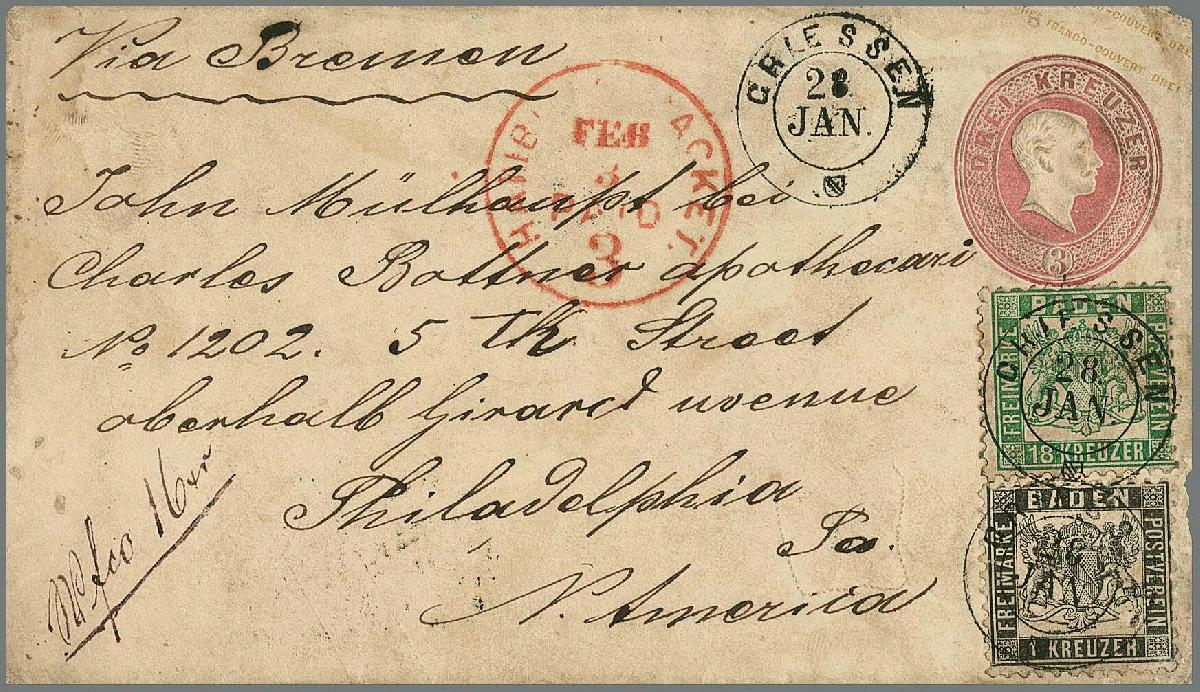 Via Bremen
GRIESSEN
28
JAN.
FRANCO-COUVERT
DREI KREUZER
3
FEB
3
PACKET.
PAID
3
John Mülhaupt bei
Charles Bottner apothecari
No 1202. 5 th Street
oberhalb Girard uvenue
Philadelphia
Pa.
N. America
BADEN
FREIMARKE
POSTVEREIN
18 KREUZER
GRIESSEN
28
JAN.
BADEN
FREIMARKE
POSTVEREIN
1 KREUZER
Wfco 16xr